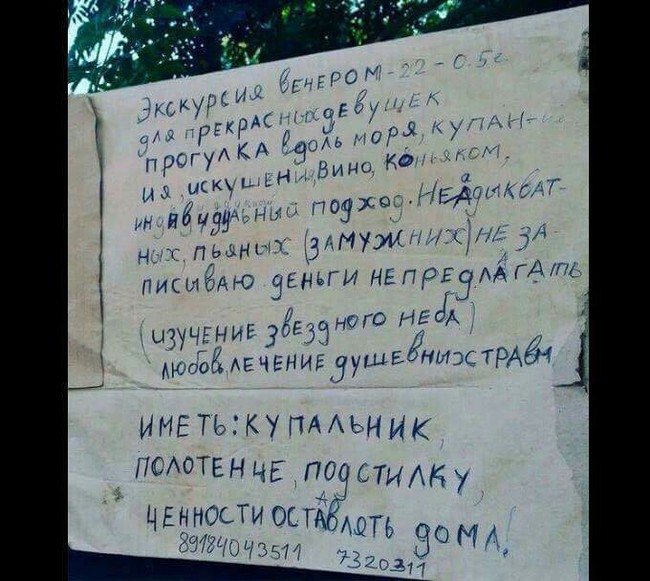 Экскурсия венером - 22 - 0.5г.
для прекрасных девушек
прогулка вдоль моря, купан-
ия, искушения, вино, коньяком,
индивидуальный подход. Неадыкват-
ных, пьяных (замужних) не за-
писываю деньги не предлагать
(изучение звездного неба)
любов, лечение душевных травм
иметь: купальник,
полотенце, подстилку,
ценности оставлять дома!
89184043511 7320311